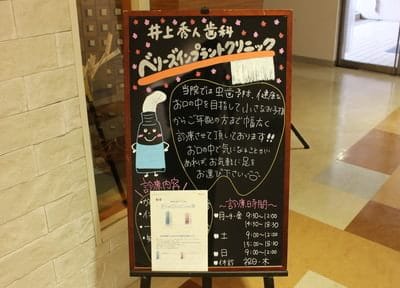 井上秀人歯科
ベリーズインプラントクリニック
当院では虫歯予防、健康な
お口の中を目指して小さなお子様
からご年配の方まで幅広く
診療させて頂いております!!
お口の中で気になることがい
あれば、お気軽に足を
お運び下さい
診療内容
〜診療時間〜
月〜金 9:30〜12:00
14:30〜18:30
土 9:00〜12:00
15:00〜18:30
日 9:00〜12:00
休診 祝日・木